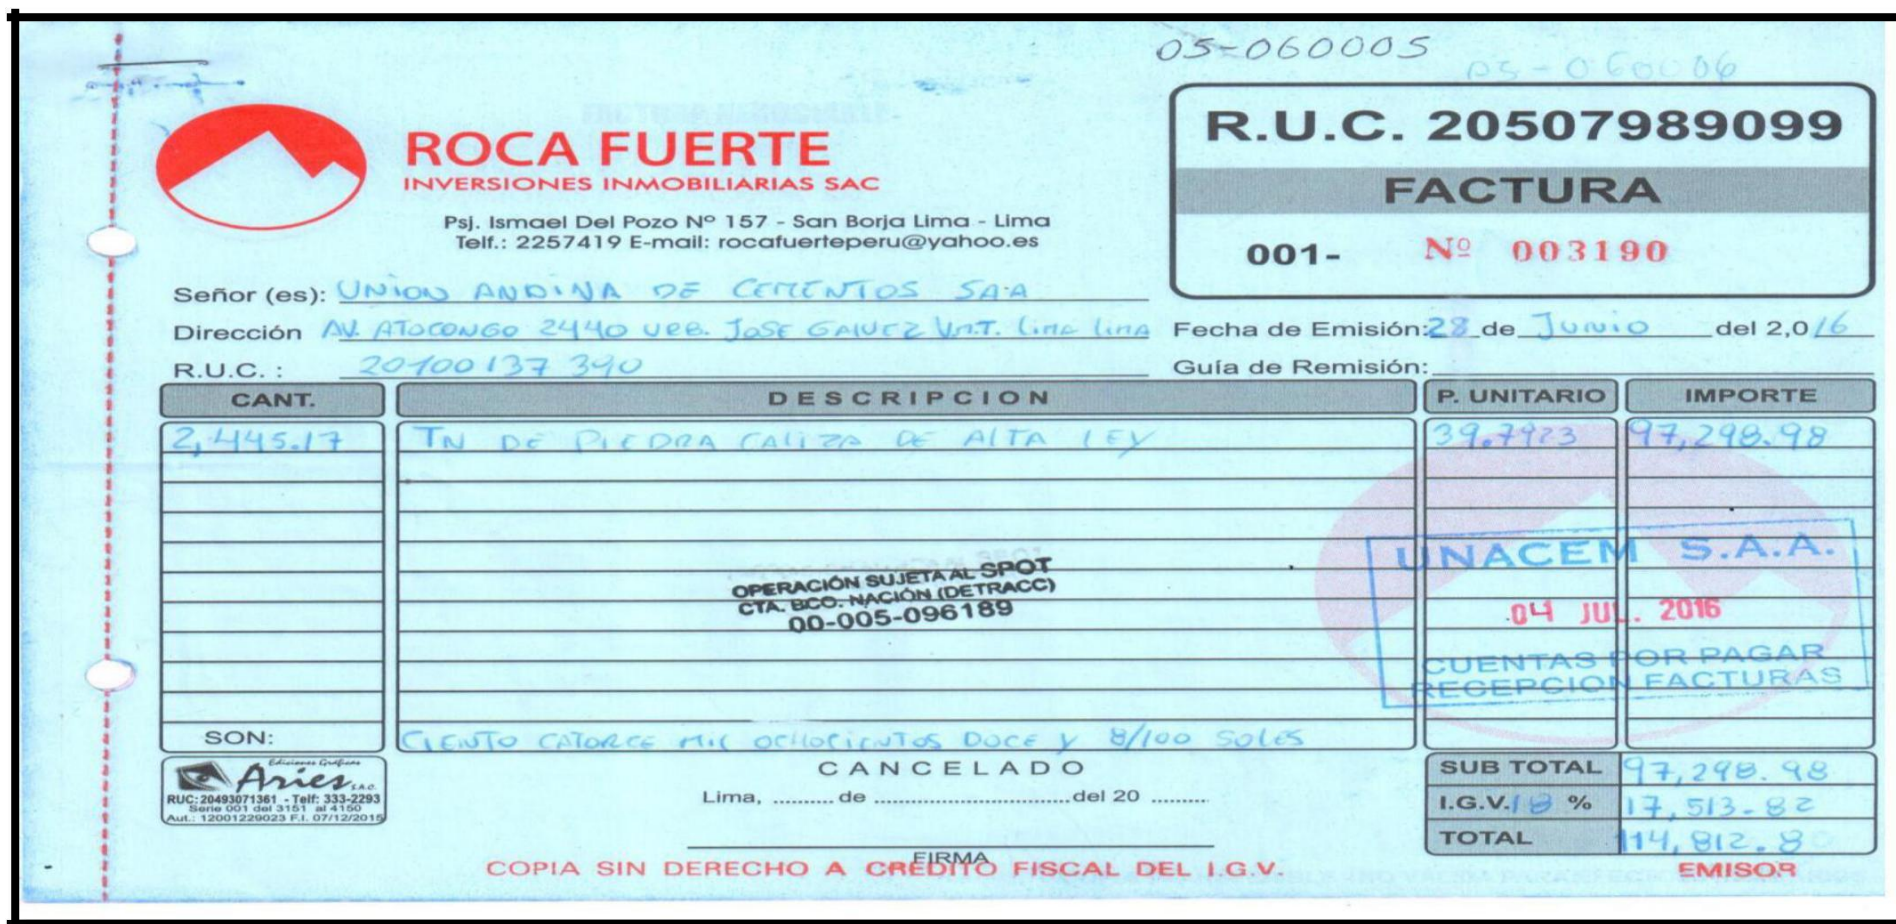 05-060005
05-060006
ROCA FUERTE
INVERSIONES INMOBILIARIAS SAC
Psj. Ismael Del Pozo Nº 157 - San Borja Lima - Lima
Telf.: 2257419 E-mail: rocafuerteperu@yahoo.es
R.U.C. 20507989099
FACTURA
001- Nº 003190
Señor (es): UNION ANDINA DE CEMENTOS SAA
Dirección AV. ATOCONGO 2440 URB. JOSE GALVEZ V.M.T. LIMA LIMA
Fecha de Emisión: 28 de JUNIO del 2,016
R.U.C. : 20100137390
Guía de Remisión:
CANT. DESCRIPCION P. UNITARIO IMPORTE
2,445.17 TN DE PIEDRA CALIZA DE ALTA LEY 39.7923 97,298.98
OPERACIÓN SUJETA AL SPOT
CTA. BCO. NACIÓN (DETRACC)
00-005-096189
UNACEM S.A.A.
04 JUL. 2016
CUENTAS POR PAGAR
RECEPCION FACTURAS
SON: CIENTO CATORCE MIL OCHOCIENTOS DOCE Y 8/100 SOLES
Ediciones Gráficas
Aries S.A.C.
RUC: 20493071361 - Telf: 333-2293
Serie 001 del 3151 al 4150
Aut.: 12001229023 F.I. 07/12/2015
CANCELADO
Lima, .......... de .............................. del 20 .........
FIRMA
SUB TOTAL 97,298.98
I.G.V. 18 % 17,513.82
TOTAL 114,812.80
COPIA SIN DERECHO A CREDITO FISCAL DEL I.G.V.
EMISOR